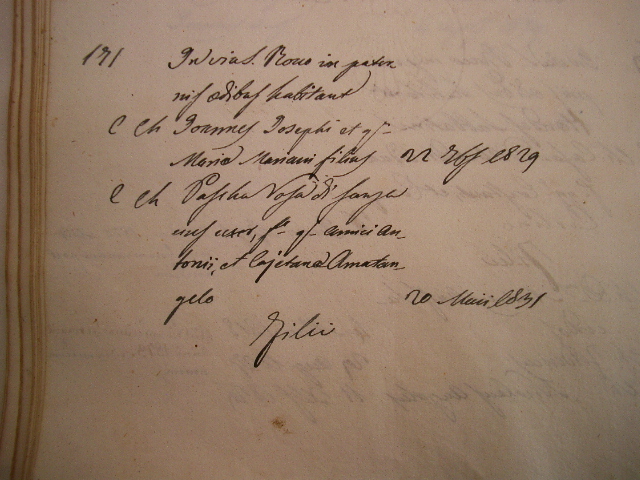 131 In via S. Roco in pater
nis ædibus habitant
C Ch Joannes Josephi et q.
Maria Mariani filius 22 Xbs 1829
C Ch Pascha Rosa di
ejus uxor, fa q. Amici An-
tonii, et Cajetana Amatan-
gelo 20 Maii 1831
Filii